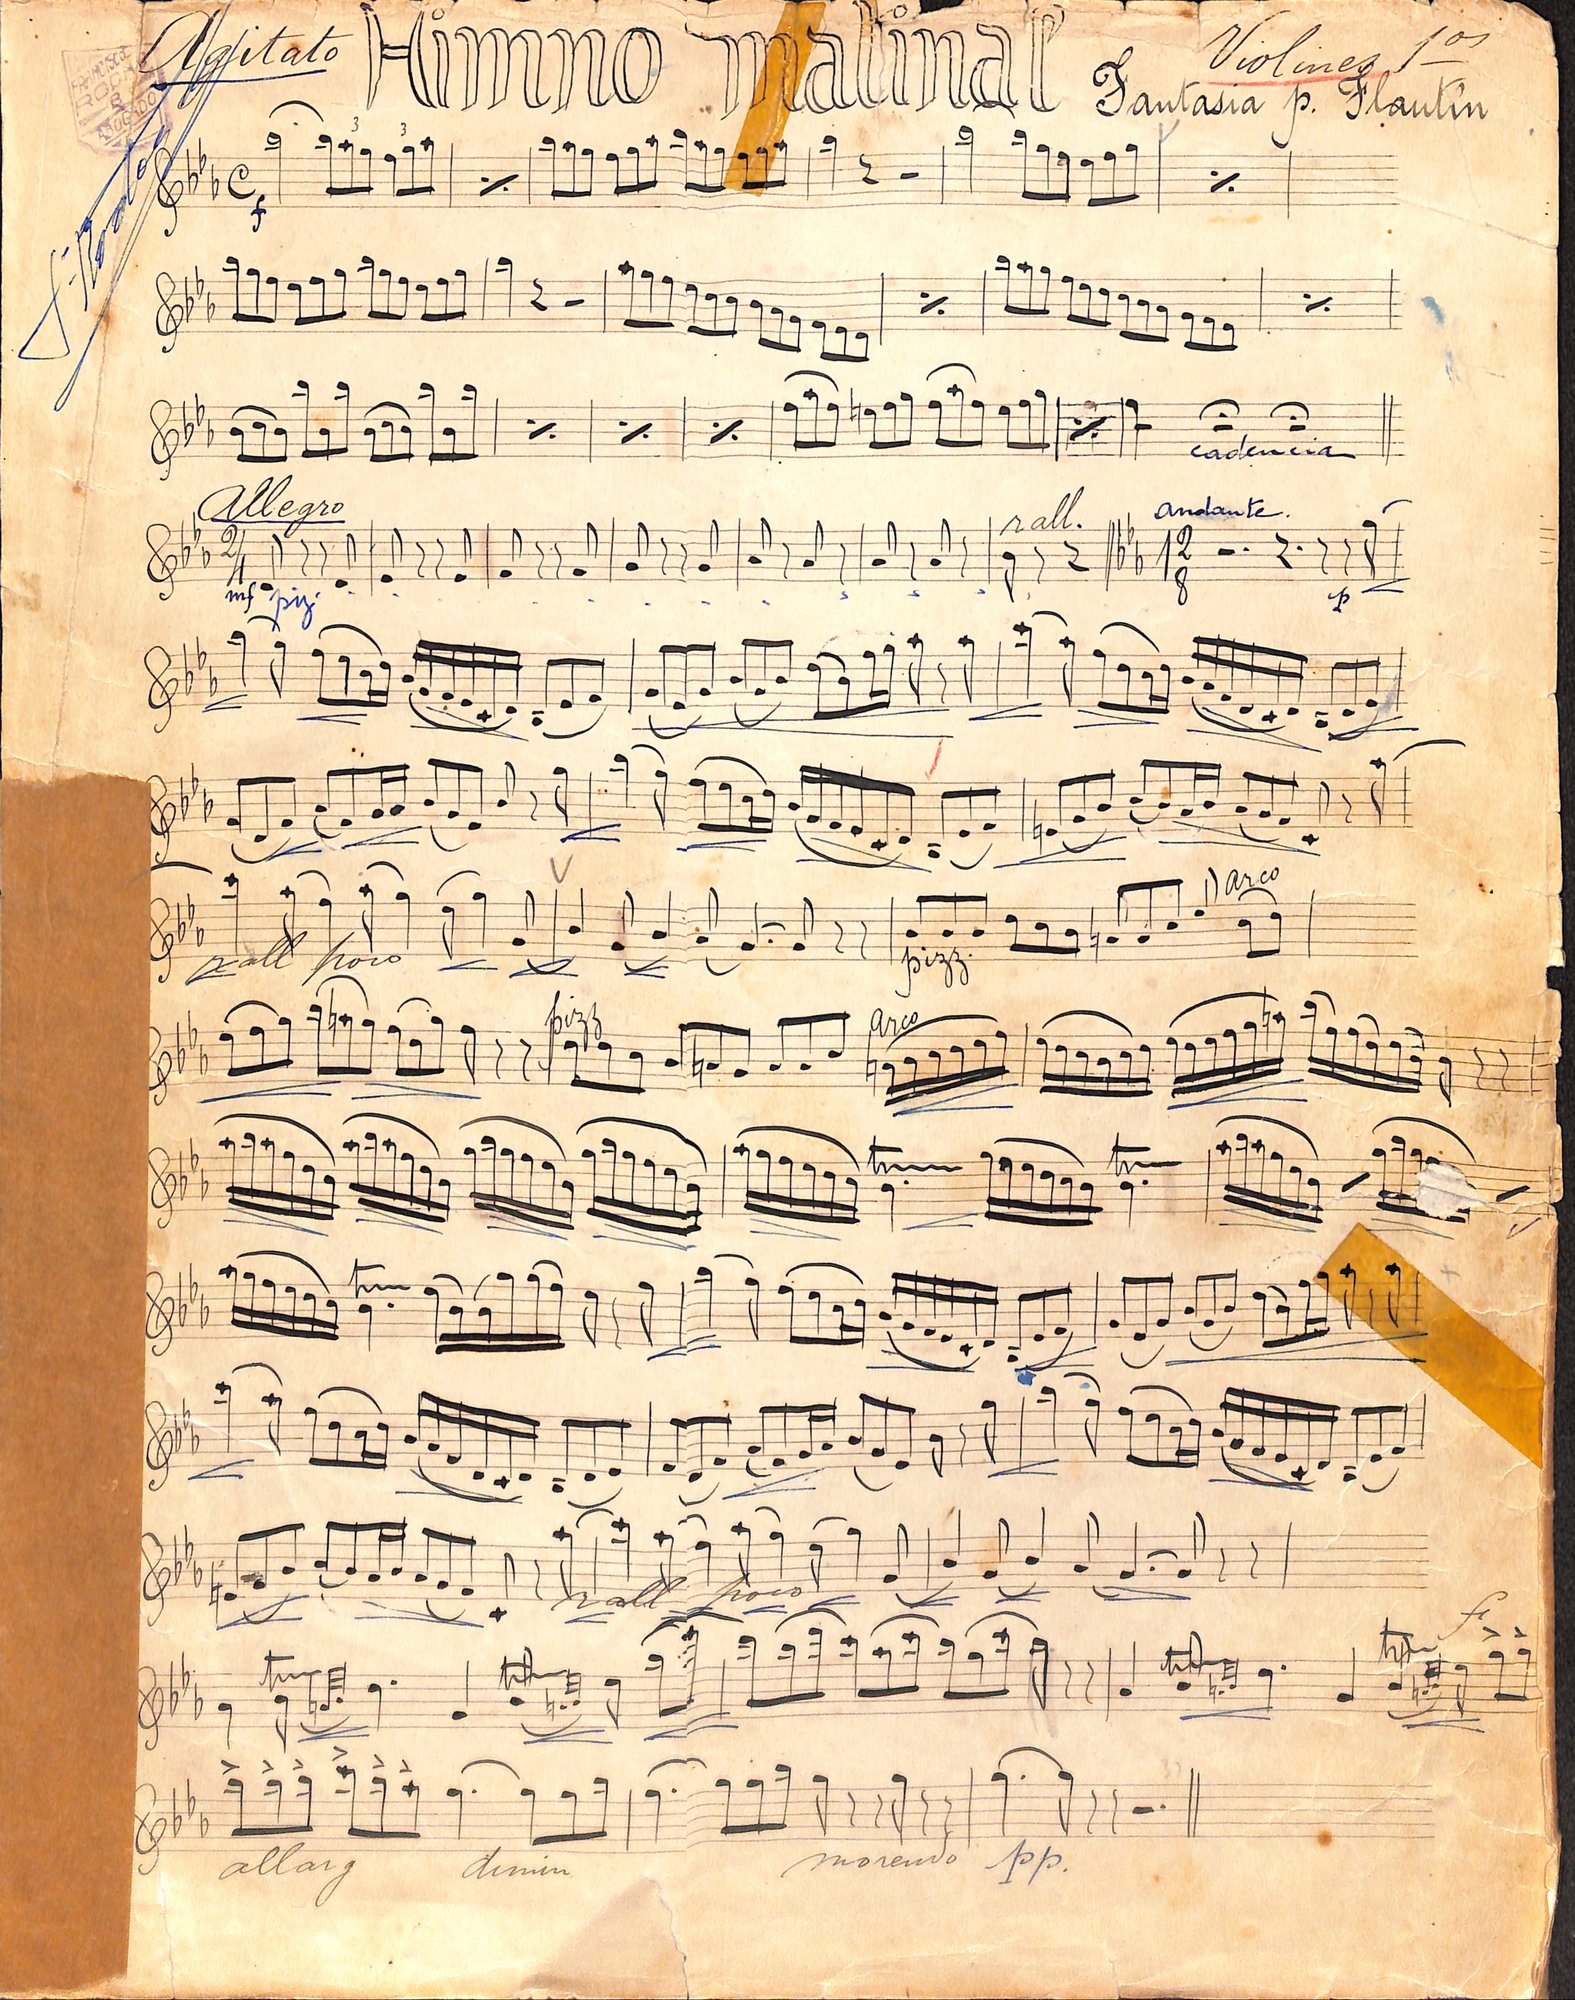 Agitato Himno matinal Violines 1os
Fantasia p. Flautin
FRANCISCO
ROCA
ABOGADO
3 3
f
cadencia
Allegro rall. andante.
2/4 12/8
mf piz. p
rall poco pizz. arco
pizz arco
tr tr
tr
rall poco
f
tr tr tr tr
allarg dimin morendo pp.